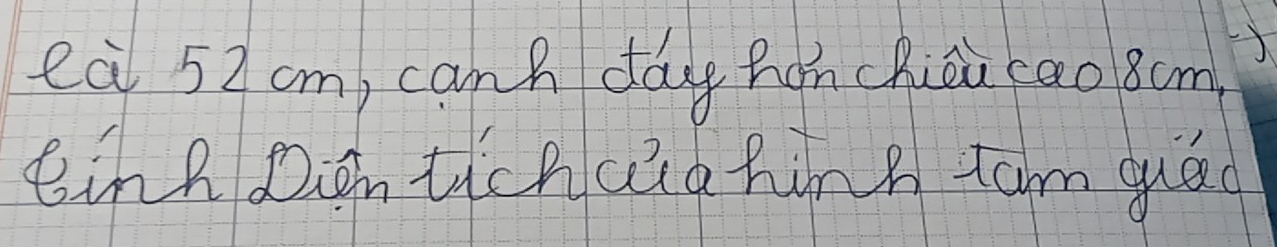 là 52 cm, cạnh đáy hơn chiều cao 8cm,
tính Diện tích của hình tam giác